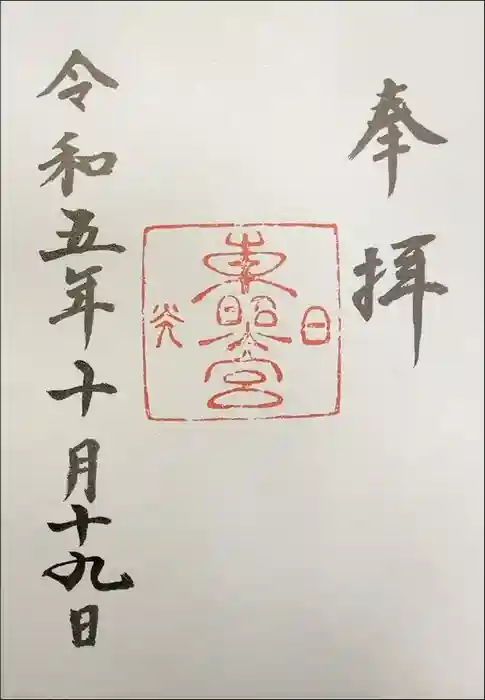 奉拝
日
東照宮
光
令和五年十月十九日